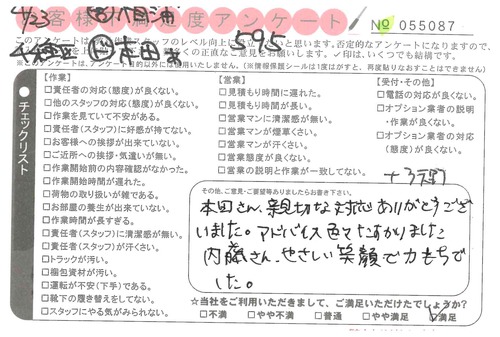 4/23
お客様満足度アンケート
№ 055087
595
※このアンケートは、アンケート目的以外には使用いたしません。(※情報保護シールは1度はがすと、再度貼りなおすことはできません)
チェックリスト
【作業】
□責任者の対応(態度)が良くない。
□他のスタッフの対応(態度)が良くない。
□作業を見ていて不安がある。
□責任者(スタッフ)に好感が持てない。
□お客様への挨拶が出来ていない。
□ご近所への挨拶・気遣いが無い。
□作業開始前の内容確認がなかった。
□作業開始時間が遅れた。
□荷物の取り扱いが雑である。
□お部屋の養生が出来ていない。
□作業時間が長すぎる。
□責任者(スタッフ)に清潔感が無い。
□責任者(スタッフ)が汗くさい。
□トラックが汚い。
□梱包資材が汚い。
□運転が不安(下手)である。
□靴下の履き替えをしてない。
□スタッフにやる気がみられない。
【営業】
□見積もり時間に遅れた。
□見積もり時間が長い。
□営業マンに清潔感が無い。
□営業マンが煙草くさい。
□営業マンが汗くさい。
□営業態度が良くない。
□営業の説明と作業が一致してない。
【受付・その他】
□電話の対応が良くない。
□オプション業者の説明
・作業が良くない。
□オプション業者の対応
(態度)が良くない。
その他、ご意見・ご要望等ありましたらお書き下さい。
本田さん、親切な対応ありがとうござ
いました。アドバイス色々たすかりました
内藤さん、やさしい笑顔で力もちで
した。
☆当社をご利用いただきまして、ご満足いただけたでしょうか?
□不満 □やや不満 □普通 □やや満足 ☑満足